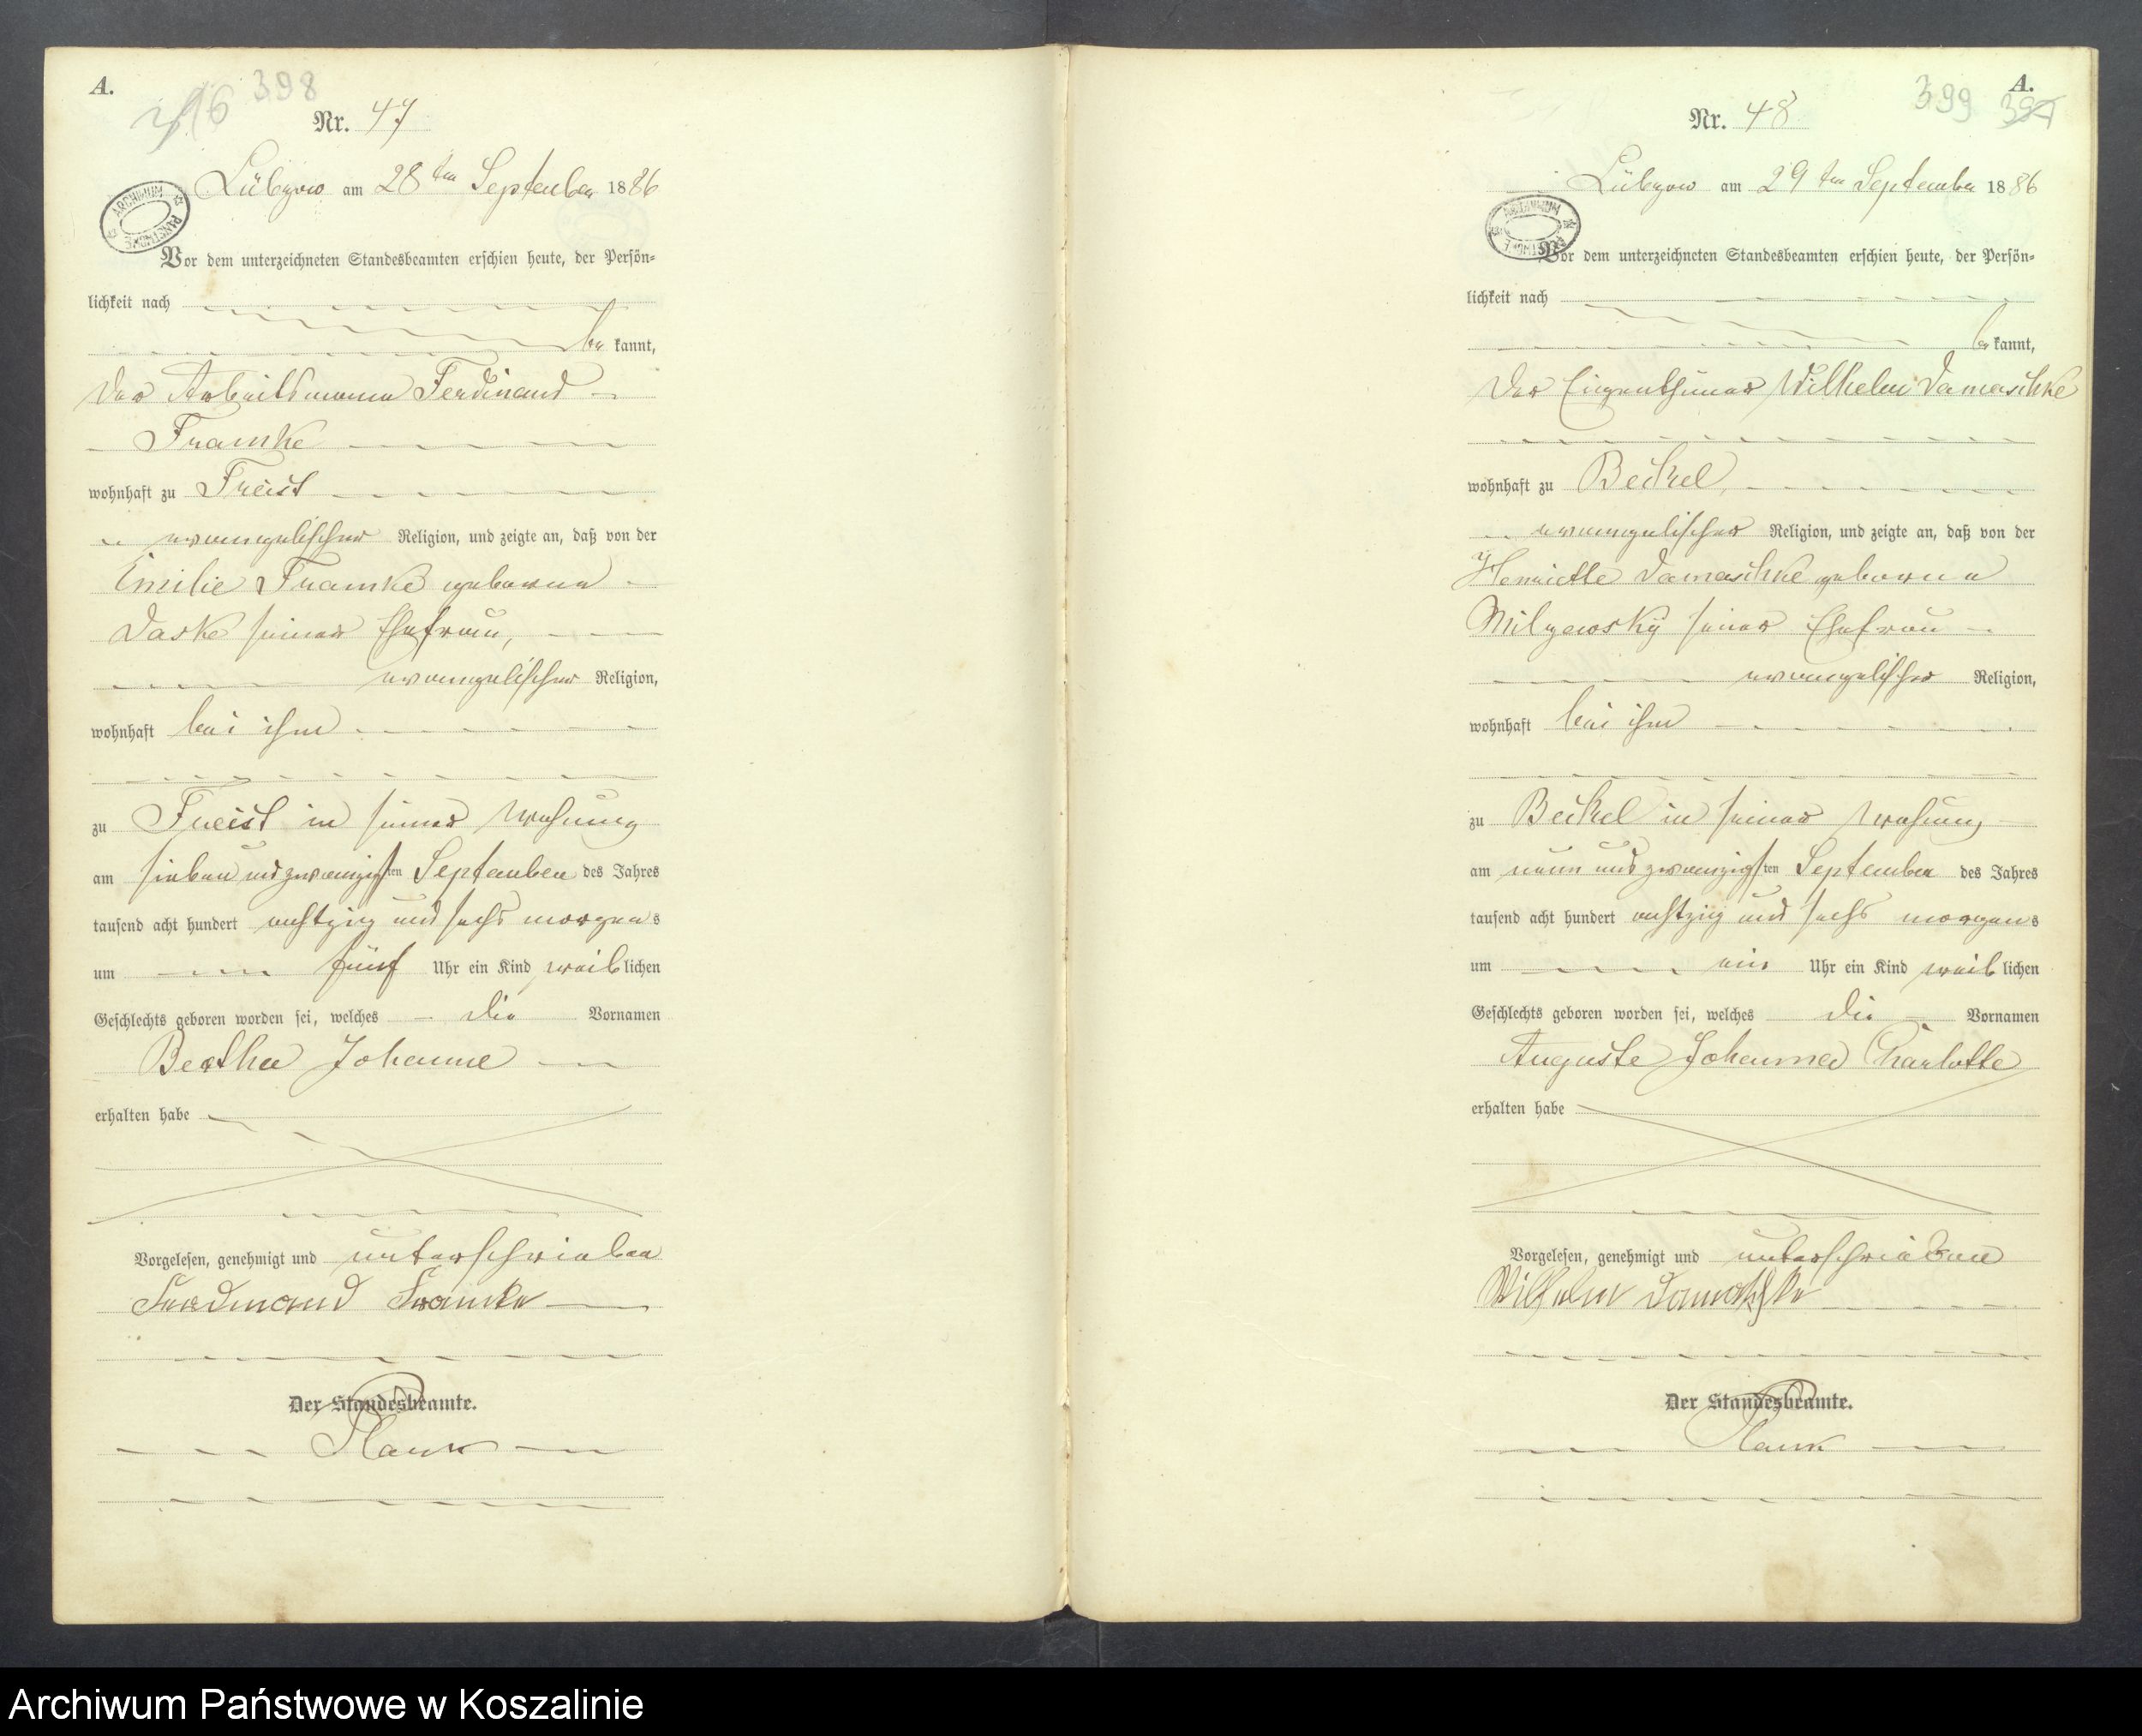 A.
398
Nr. 47
Lübzow am 28ten September 1886
ARCHIWUM PAŃSTWOWE
Vor dem unterzeichneten Standesbeamten erschien heute, der Persön-
lichkeit nach
be kannt,
der Arbeitsmann Ferdinand
Framke
wohnhaft zu Freist
evangelischer Religion, und zeigte an, daß von der
Emilie Framke geborene
Daske seiner Ehefrau,
evangelischer Religion,
wohnhaft bei ihm
zu Freist in seiner Wohnung
am sieben und zwanzigsten September des Jahres
tausend acht hundert achtzig und sechs morgens
um fünf Uhr ein Kind weiblichen
Geschlechts geboren worden sei, welches die Vornamen
Bertha Johanne
erhalten habe
Vorgelesen, genehmigt und unterschrieben
Ferdinand Framke
Der Standesbeamte.
A.
399
Nr. 48
Lübzow am 29ten September 1886
ARCHIWUM PAŃSTWOWE
Vor dem unterzeichneten Standesbeamten erschien heute, der Persön-
lichkeit nach
be kannt,
der Eigenthümer Wilhelm Damaschke
wohnhaft zu Beckel,
evangelischer Religion, und zeigte an, daß von der
Henriette Damaschke geborene
Milzewsky seiner Ehefrau
evangelischer Religion,
wohnhaft bei ihm
zu Beckel in seiner Wohnung
am neun und zwanzigsten September des Jahres
tausend acht hundert achtzig und sechs morgens
um ein Uhr ein Kind weiblichen
Geschlechts geboren worden sei, welches die Vornamen
Auguste Johanna Charlotte
erhalten habe
Vorgelesen, genehmigt und unterschrieben
Wilhelm Damaschke
Der Standesbeamte.
Archiwum Państwowe w Koszalinie